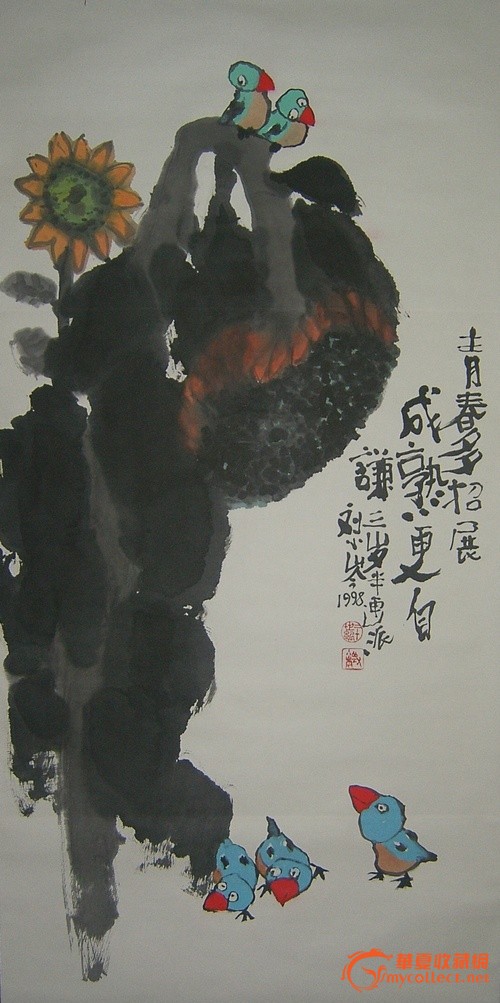 青春多招展
成熟更自
謙 三岁半画派
刘小岑 1998
華夏收藏網
mycollect.net